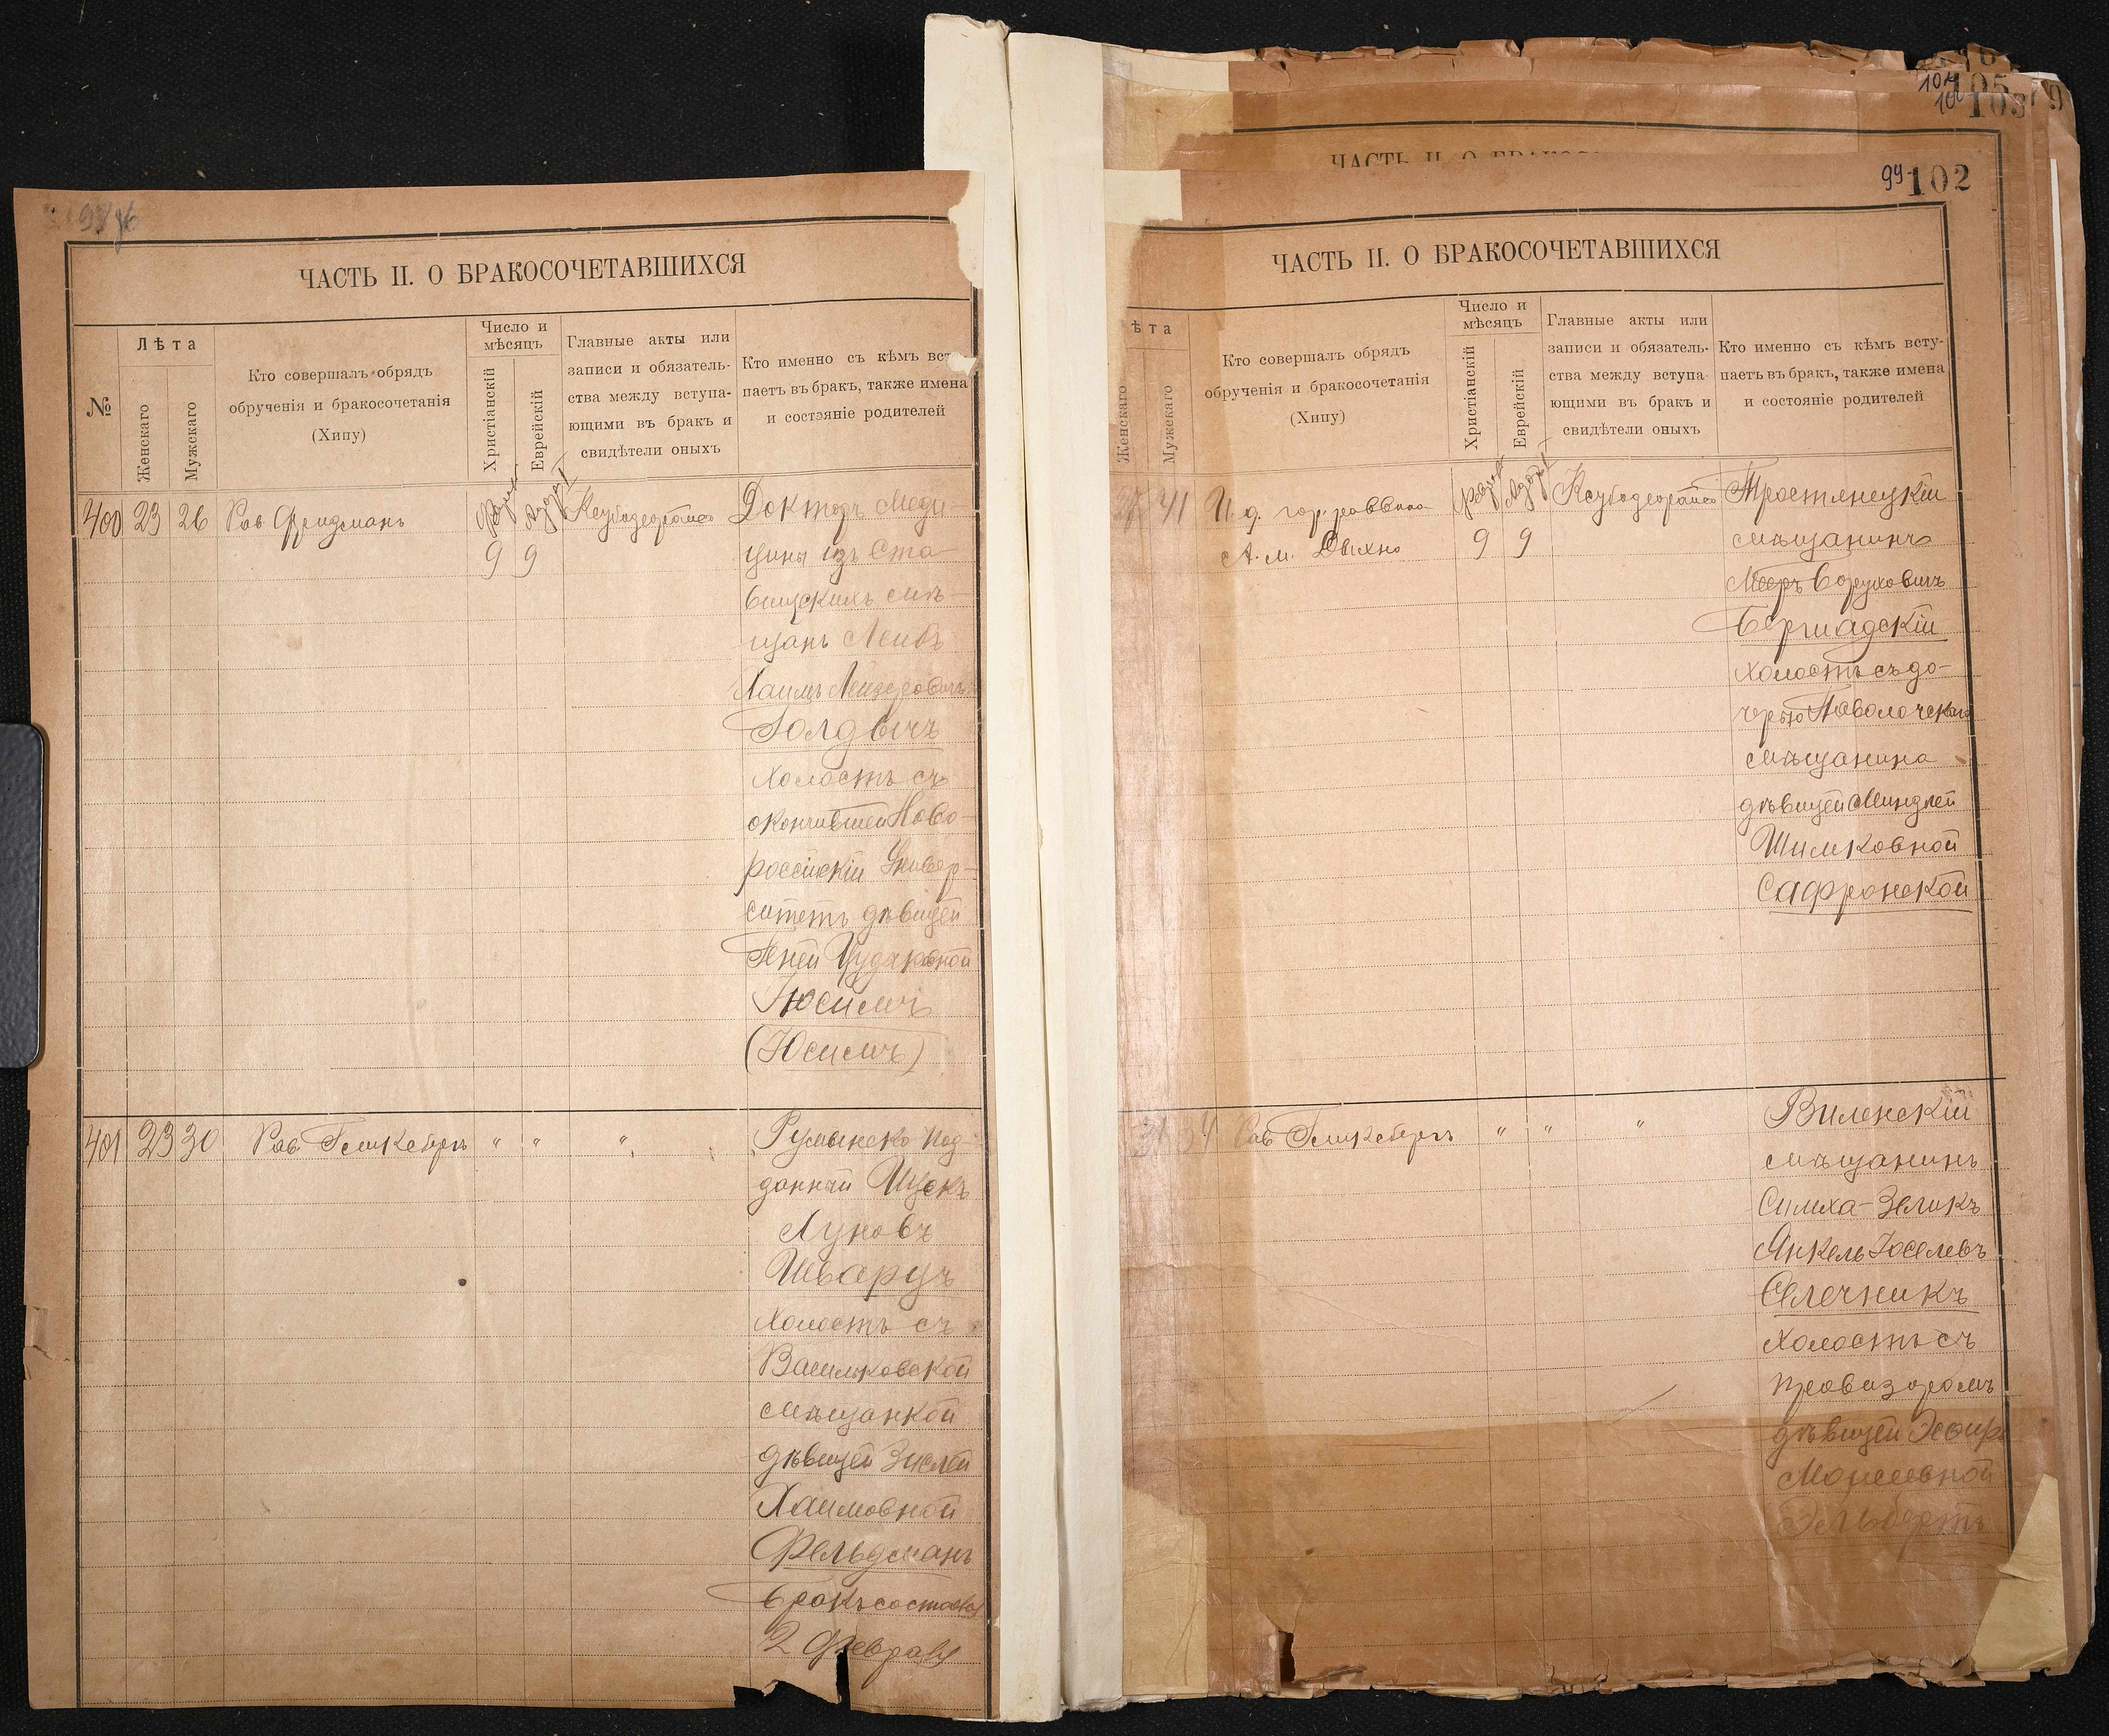 ЧАСТЬ II. О БРАКОСОЧЕТАВШИХСЯ
№
Лѣта
Женскаго
Мужскаго
Кто совершалъ обрядъ
обрученія и бракосочетанія
(Хипу)
Число и
мѣсяцъ
Христіанскій
Еврейскій
Главные акты или
записи и обязатель-
ства между вступа-
ющими въ бракъ и
свидѣтели оныхъ
Кто именно съ кѣмъ вст
паетъ въ бракъ, также имена
и состояніе родителей
400 23 26 Рав Фридманъ
9 9
Докторъ Меди-
цины изъ Ста-
вищскихъ мѣ-
щанъ Лейбъ
Хаимъ Лейзеровичъ
Голдвичъ
холостъ съ
окончившей Ново-
россійскій Универ-
ситетъ дѣвицей
Юсимъ
(Юсимъ)
401 23 30 Рав Гешкебергъ " " "
Румынско под-
данный Ицекъ
Луковъ
Шварцъ
холостъ съ
Васильковской
мѣщанкой
дѣвицей Зислей
Хаимовной
Фельдманъ
бракъ состоялся
2 Февраля
99 102
ЧАСТЬ II. О БРАКОСОЧЕТАВШИХСЯ
ѣта
Женскаго
Мужскаго
Кто совершалъ обрядъ
обрученія и бракосочетанія
(Хипу)
Число и
мѣсяцъ
Христіанскій
Еврейскій
Главные акты или
записи и обязатель-
ства между вступа-
ющими въ бракъ и
свидѣтели оныхъ
Кто именно съ кѣмъ всту-
паетъ въ бракъ, также имена
и состояніе родителей
41 И. д. гор. раввина
А. М. Двихно
9 9
Тростянецкій
мѣщанинъ
Мееръ Боруховичъ
Бершадскій
холостъ съ до-
черью Паволочскаго
мѣщанина
дѣвицей Миндлей
Шимковной
Сафронской
31 34 Рав Гешкебергъ " " "
Виленскій
мѣщанинъ
Симха-Зеликъ
Янкель Іоселевъ
Селечникъ
холостъ съ
провизоромъ
дѣвицей Эсфирь
Моисеевной
Эльбертъ